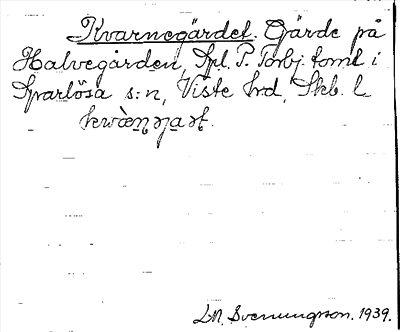 Kvarnegärdet. Gärde på
Halvegården, Spl. P. Torbj. toml i
Sparlösa s:n, Viste hrd, Skb. l.
L.M. Svenungsson. 1939.